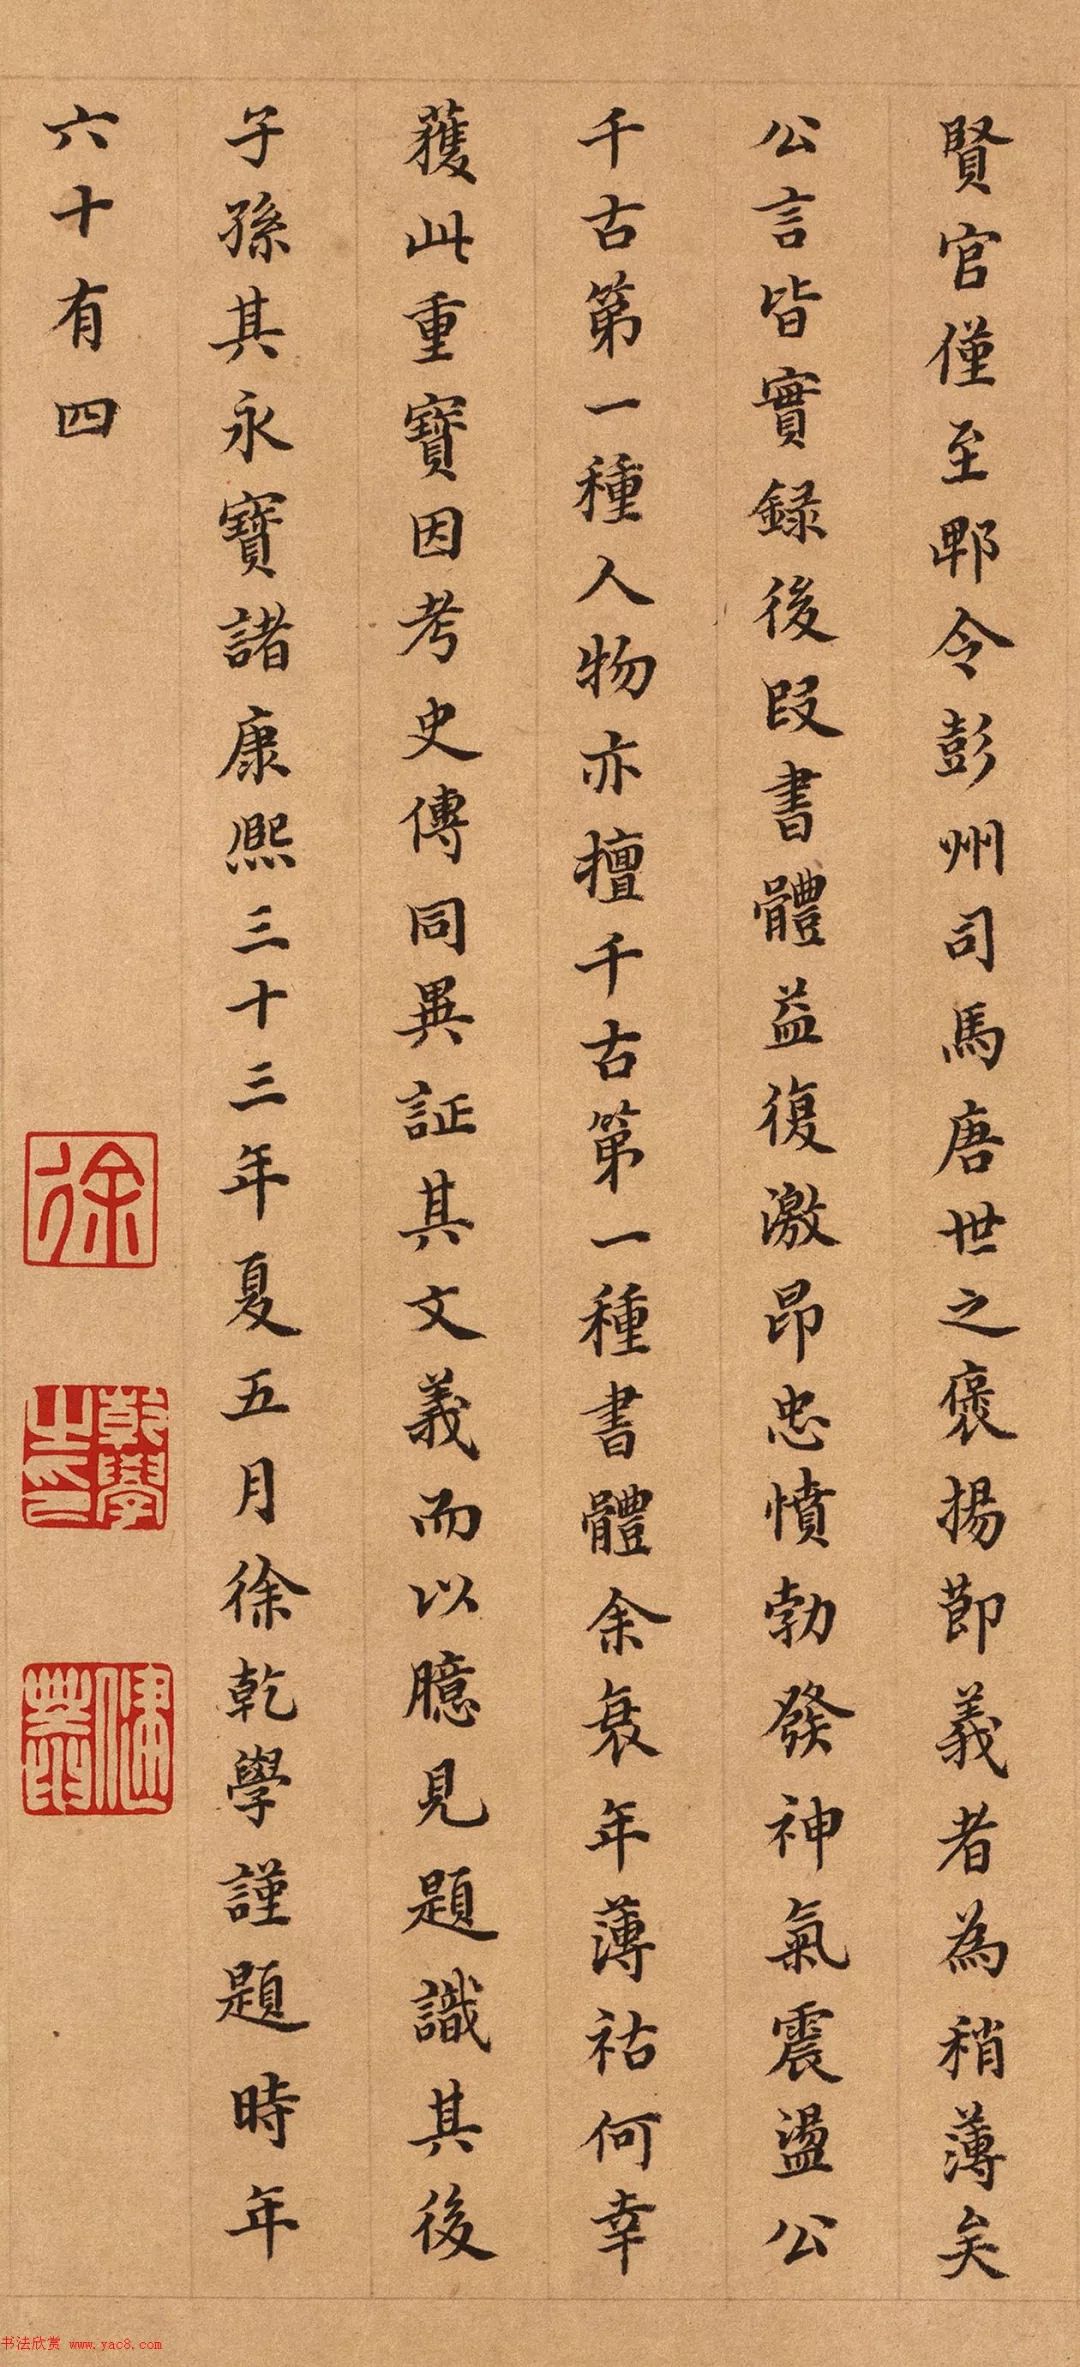 賢官僅至郫令彭州司馬唐世之褒揚節義者為稍薄矣
公言皆實録後段書體益復激昂忠憤勃發神氣震盪公
千古第一種人物亦擅千古第一種書體余衰年薄祜何幸
獲此重寶因考史傳同異証其文義而以臆見題識其後
子孫其永寶諸康熙三十三年夏五月徐乾學謹題時年
六十有四
徐
乾學之印
健菴
书法欣赏 www.yac8.com